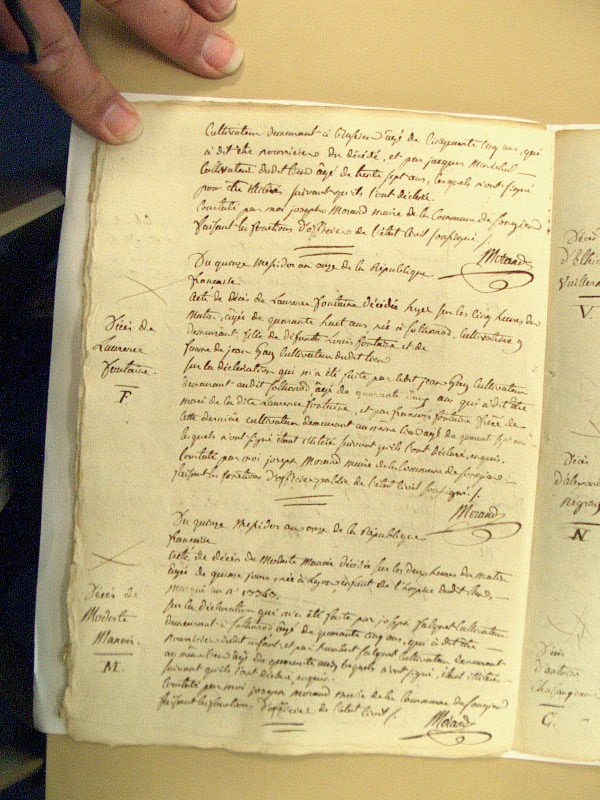 Cultivateur demeurant à âgé de Cinquante Cinq ans, qui
a dit être nourricier du décédé, et par jacques Maréchal
Cultivateur dudit lieu âgé de trente sept ans, lesquels n'ont signé
pour être illitérés suivant qu'ils l'ont déclaré.
Constaté par moi joseph Morand maire de la Commune de
faisant les fonctions d'officier de l'état Civil soussigné /.
Morand
Du quinze Messidor an onze de la République
française
Acte de Décès de Laurence fontaine Décédée hyer sur les Cinq heures du
Matin, âgée de quarante huit ans, née à Cultivatrice y
demeurant, fille de défunts Louis fontaine et de
femme de jean Gay Cultivateur dudit lieu
Sur la déclaration qui m'a été faite par ledit jean Gay Cultivateur
demeurant audit âgé de quarante ans qui a dit être
mari de la dite Laurence fontaine, et par françois fontaine frère de
cette dernière cultivateur demeurant au même lieu âgé de ans
lesquels n'ont signé étant illitérés suivant qu'ils l'ont déclaré, enquis.
Constaté par moi joseph Morand maire de la Commune de
faisant les fonctions d'officier public de l'état Civil soussigné /.
Morand
Décès de
Laurence
fontaine.
F
Du quinze Messidor an onze de la République
française
Acte de décès de Modeste Manoir décédée sur les deux heures du matin
âgée de quinze jours, née à Lyon, enfant de l'hospice dudit lieu,
Marqué au n°
Sur la déclaration qui m'a été faite par joseph Cultivateur
demeurant à âgé de quarante cinq ans, qui a dit être
nourricier dudit enfant, et par humbert Cultivateur demeurant
au même lieu âgé de quarante ans lesquels n'ont signé, étant illitérés
suivant qu'ils l'ont déclaré, enquis.
Constaté par moi joseph Morand maire de la Commune de
faisant les fonctions d'officier de l'état Civil /.
Morand
Décès de
Modeste
Manoir.
M.
Décès
V.
Décès
N
Décès
d'antoine
C.